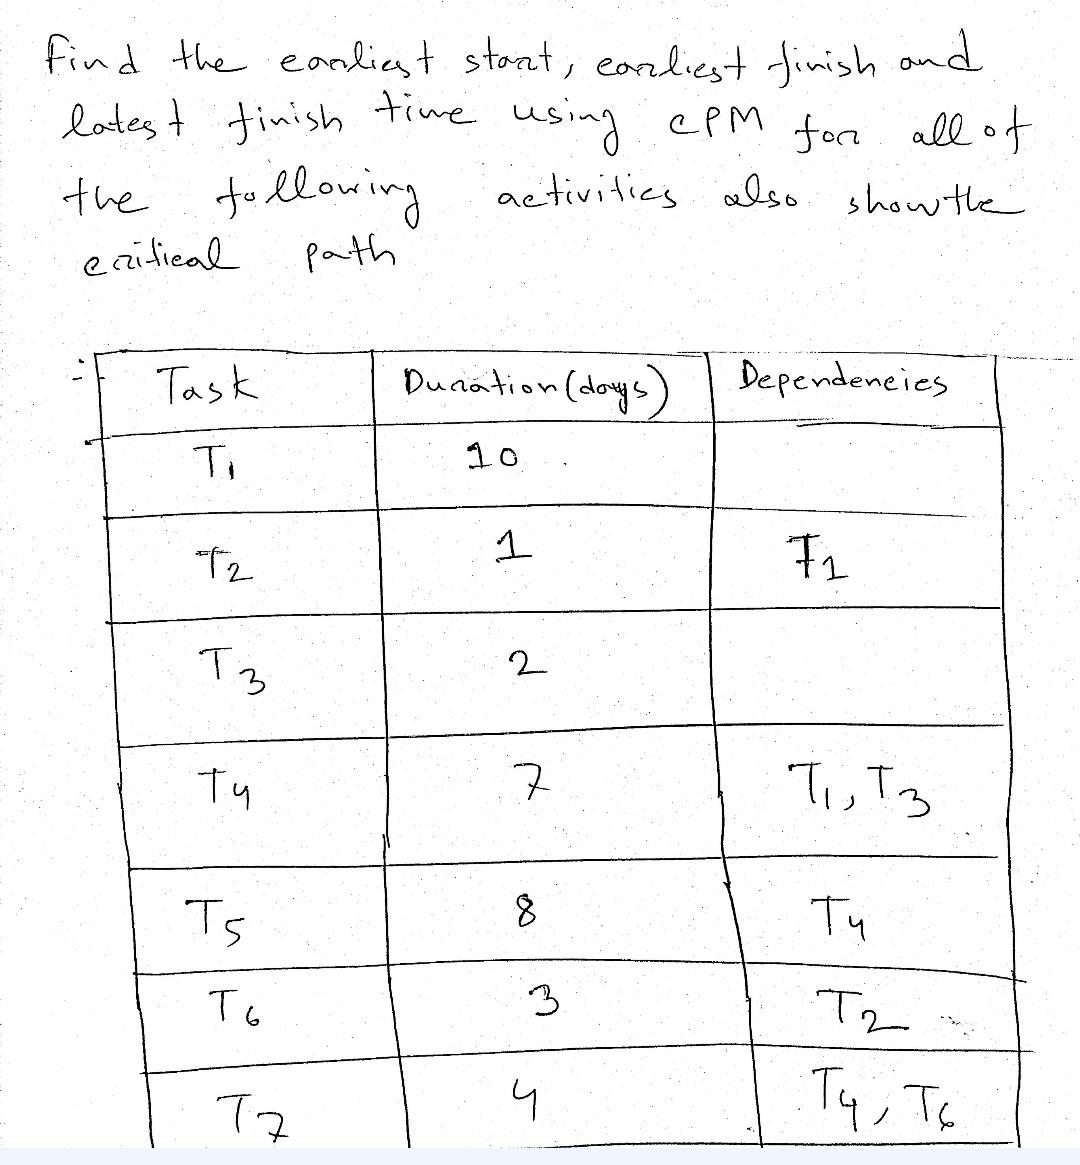 find the earliest start, earliest finish and
latest finish time using CPM for all of
the following activities also show the
critical path
:- Task Duration (days) Dependencies
T1 10
T2 1 T1
T3 2
T4 7 T1, T3
T5 8 T4
T6 3 T2
T7 4 T4, T6